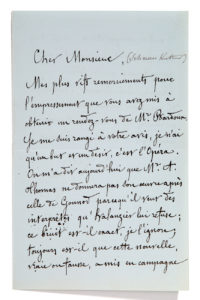 Cher Monsieur,
Mes plus vifs remerciements pour
l'empressement que vous avez mis à
obtenir un rendez-vous de Mr
Je me suis rangé à votre avis, je n'ai
qu'un but et un désir, c'est l'Opéra.
On m'a dit aujourd'hui que Mr A
Thomas ne donnera pas son œuvre après
celle de Gounod parcequ'il veut des
interprètes qu'Halanzier lui refuse;
ce bruit est-il exact, je l'ignore;
toujours est-il que cette nouvelle,
vraie ou fausse, a mis en campagne